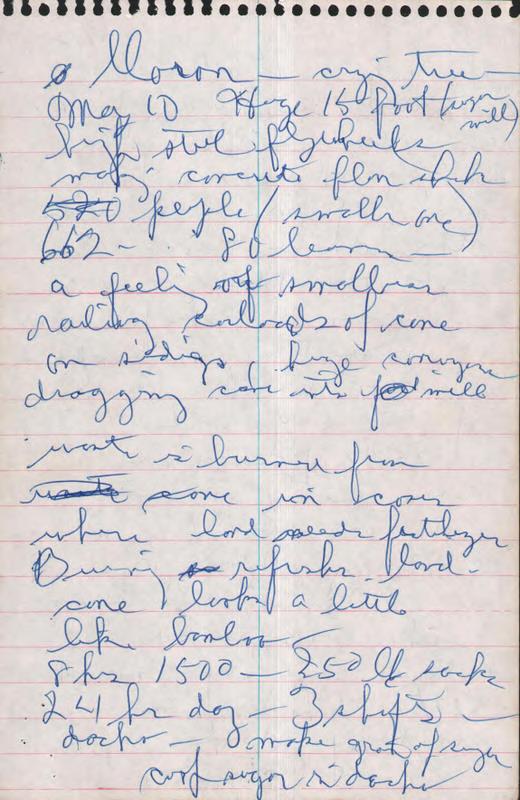 Moron — crazy tree —
May 10 Huge 15 foot (sugar mill)
high steel flywheels
making concrete floor shake
520 people (smaller one)
662 - 80 learn —
a feeling of smallness
railway carloads of cane
on sidings, huge conveyors
dragging cane into mill
waste is burned from
cane in cases
where land needs fertilizer
Burning refreshes land -
cane looks a little
like bamboo —
8 hrs 1500 — 250 lb sacks
24 hr day — 3 shifts —
make grade of sugar
sugar is